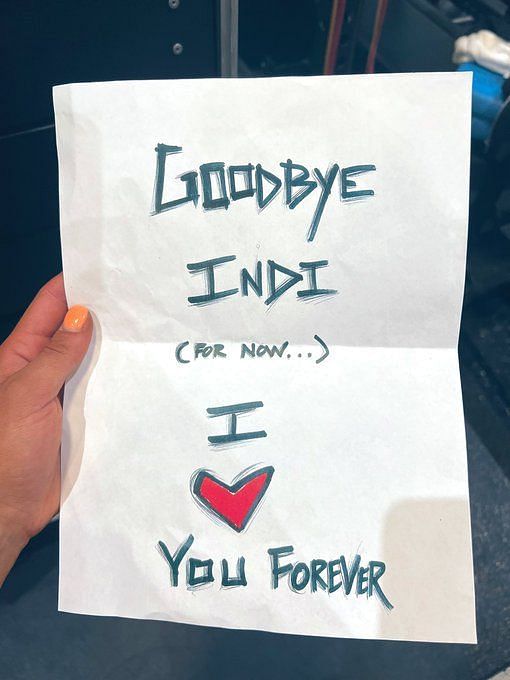 GOODBYE
INDI
(FOR NOW...)
I
YOU FOREVER